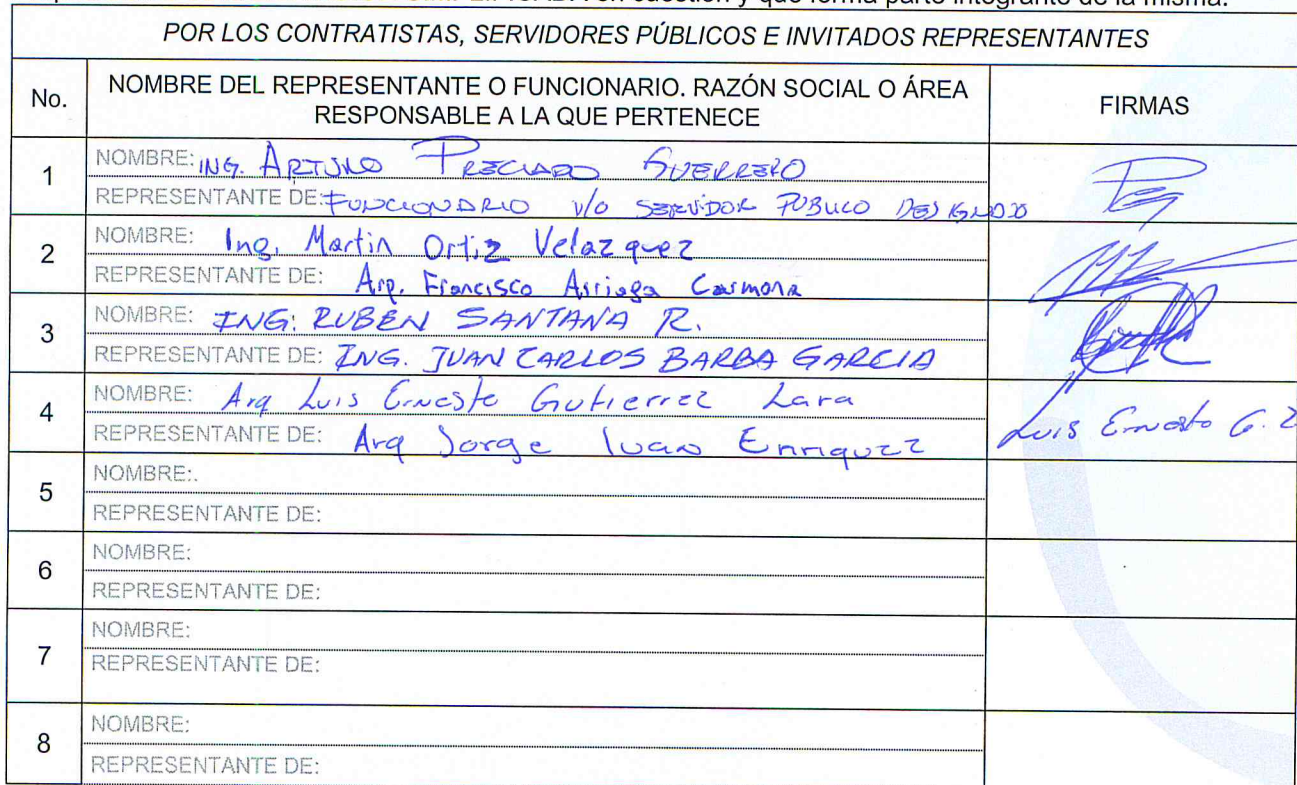 en cuestión y que forma parte integrante de la misma.
POR LOS CONTRATISTAS, SERVIDORES PÚBLICOS E INVITADOS REPRESENTANTES
No.
NOMBRE DEL REPRESENTANTE O FUNCIONARIO. RAZÓN SOCIAL O ÁREA
RESPONSABLE A LA QUE PERTENECE
FIRMAS
1
NOMBRE: ING. ARTURO PRECIADO GUERRERO
REPRESENTANTE DE: FUNCIONARIO Y/O SERVIDOR PUBLICO DESIGNADO
2
NOMBRE: Ing. Martin Ortiz Velazquez
REPRESENTANTE DE: Arq. Francisco Arriaga Carmona
3
NOMBRE: ING: RUBEN SANTANA R.
REPRESENTANTE DE: ING. JUAN CARLOS BARBA GARCIA
4
NOMBRE: Arq Luis Ernesto Gutierrez Lara
REPRESENTANTE DE: Arq Jorge Ivan Enriquez
Luis Ernesto G. L
5
NOMBRE:.
REPRESENTANTE DE:
6
NOMBRE:
REPRESENTANTE DE:
7
NOMBRE:
REPRESENTANTE DE:
8
NOMBRE:
REPRESENTANTE DE: